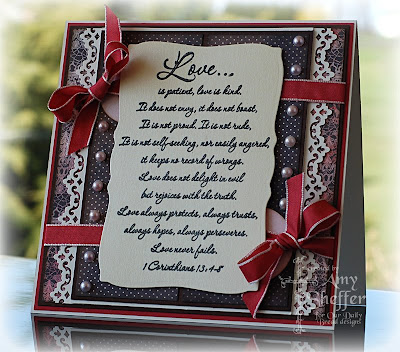 Love...
is patient, love is kind.
It does not envy, it does not boast,
It is not proud. It is not rude,
It is not self-seeking, nor easily angered,
it keeps no record of wrongs.
Love does not delight in evil
but rejoices with the truth.
Love always protects, always trusts,
always hopes, always perseveres.
Love never fails.
1 Corinthians 13:4-8
created by
Amy
Sheffer
for Our Daily
Bread designs!